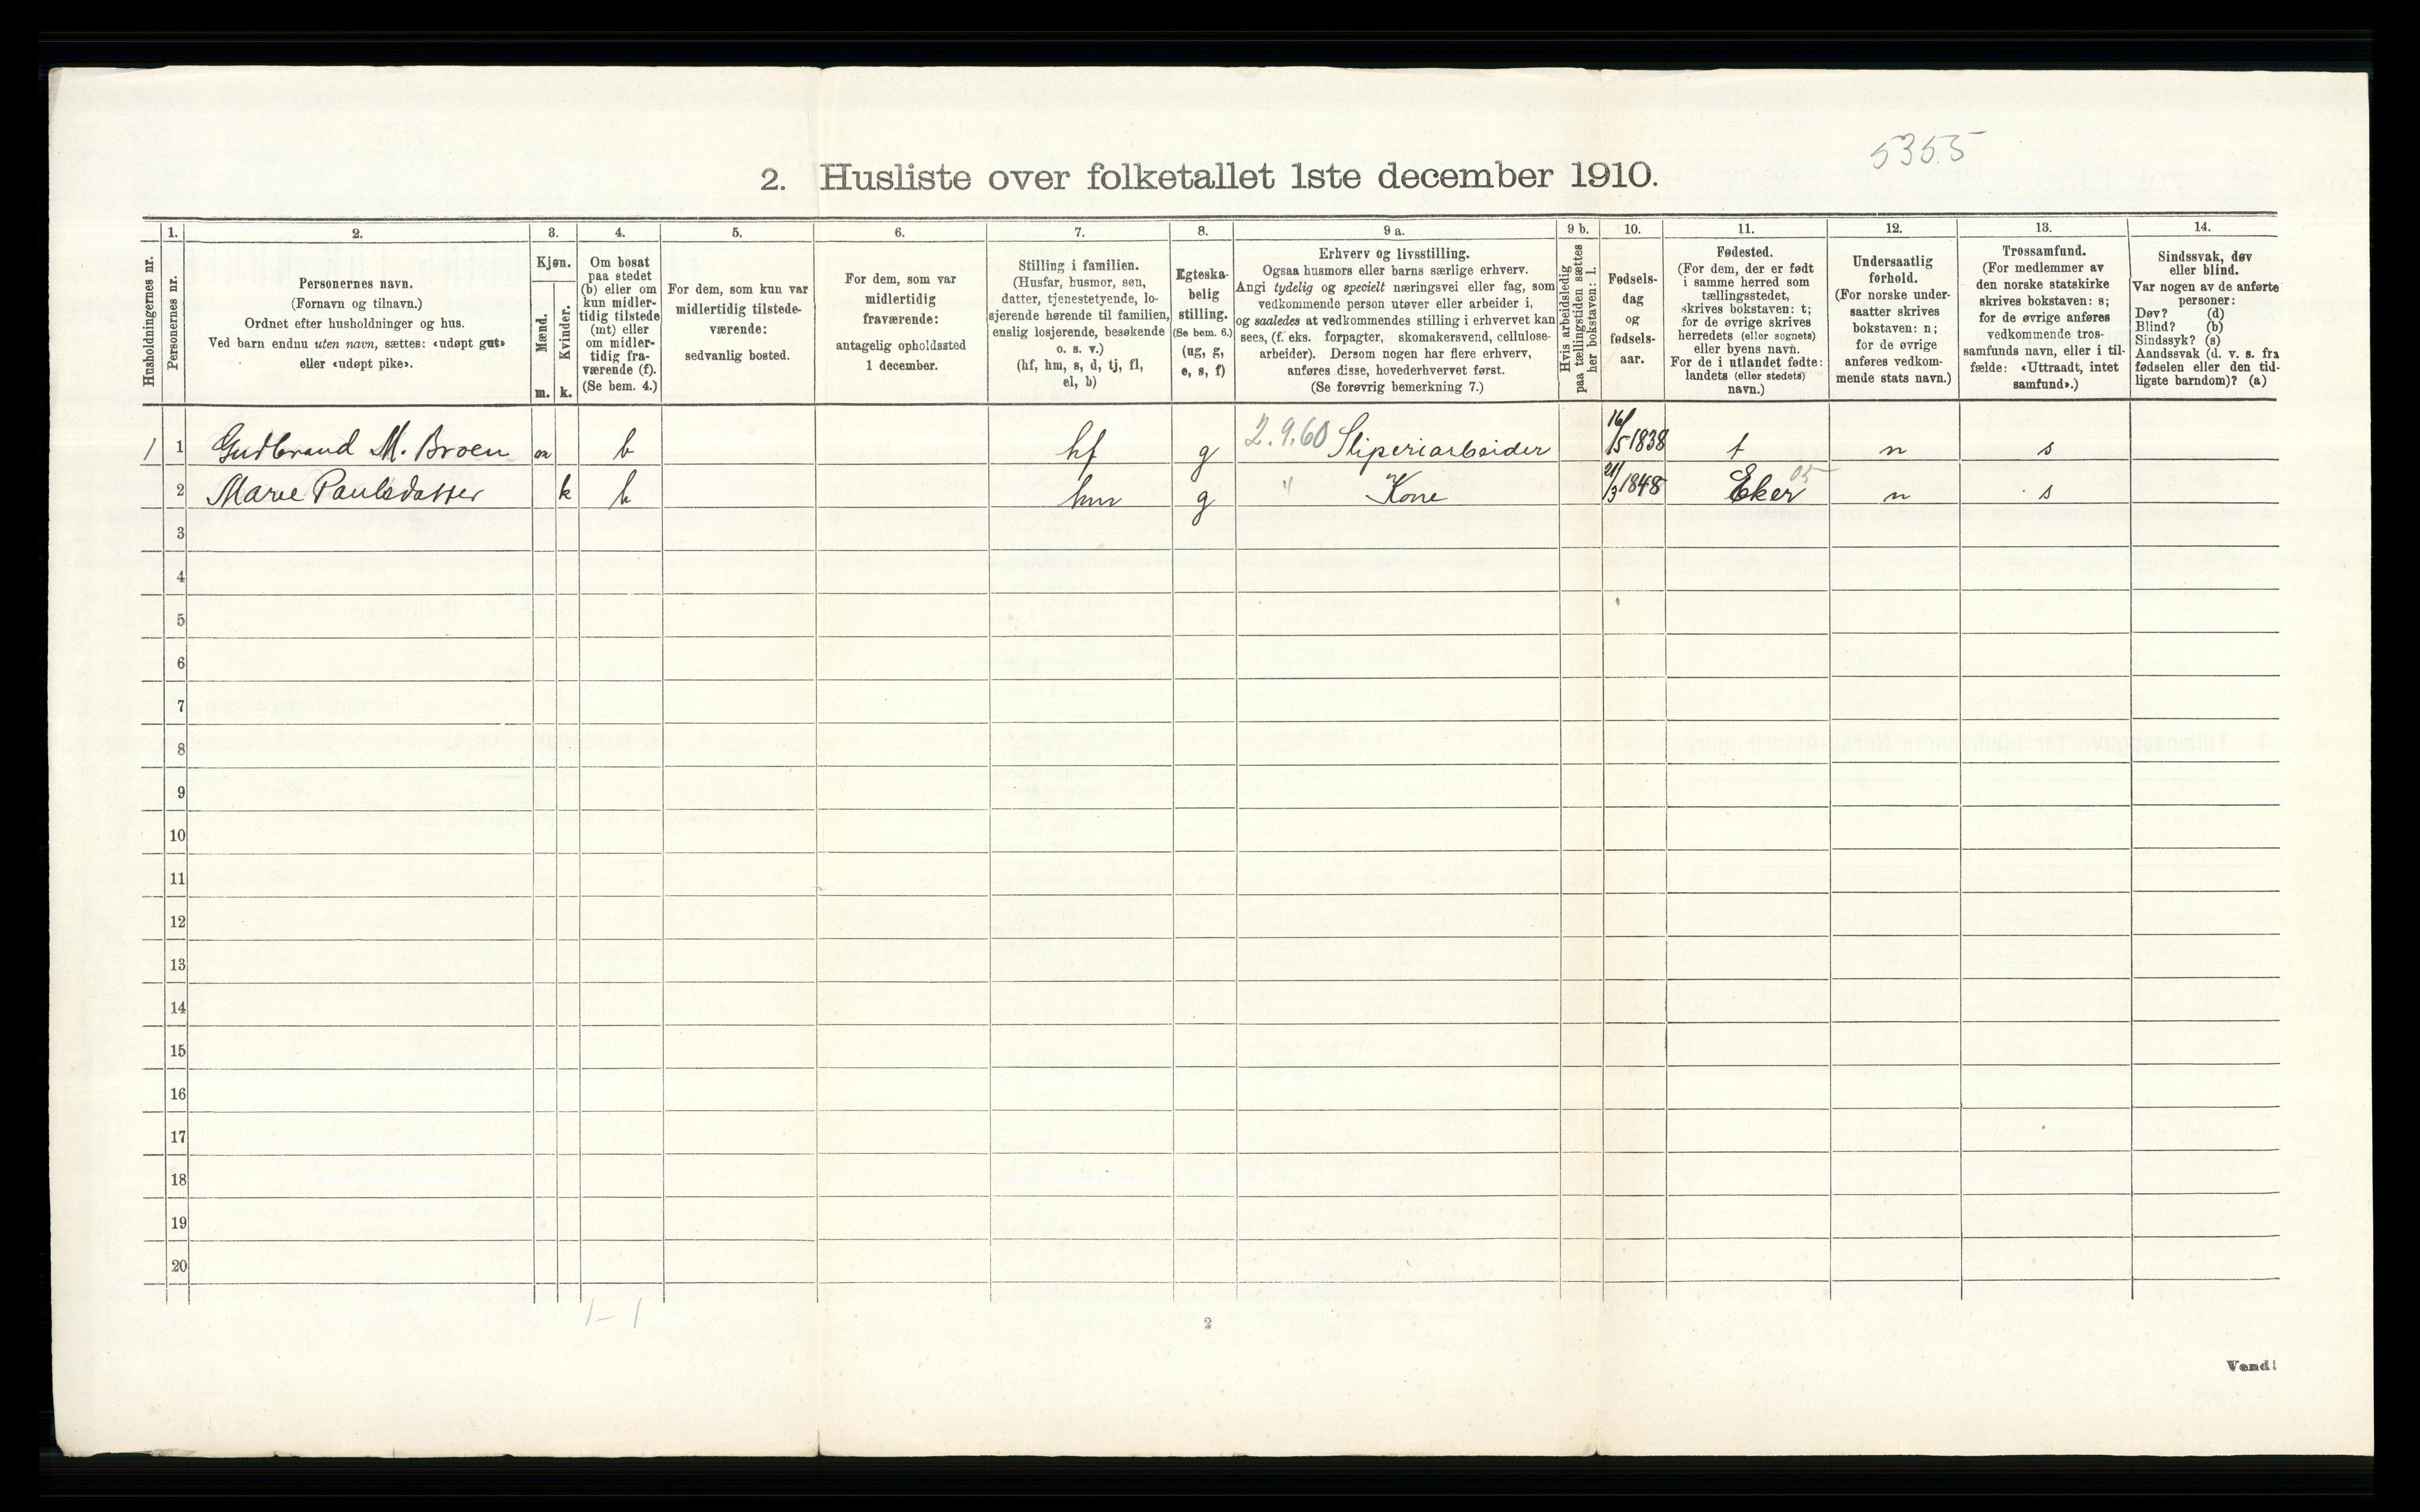 5355
2. Husliste over folketallet 1ste december 1910.
Husholdningernes nr.
1.
Personernes nr.
2.
Personernes navn.
(Fornavn og tilnavn.)
Ordnet efter husholdninger og hus.
Ved barn endnu uten navn, sættes: «udøpt gut»
eller «udøpt pike».
3.
Kjøn.
Mænd.
Kvinder.
m. k.
4.
Om bosat
paa stedet
(b) eller om
kun midler-
tidig tilstede
(mt) eller
om midler-
tidig fra-
værende (f).
(Se bem. 4.)
5.
For dem, som kun var
midlertidig tilstede-
værende:
sedvanlig bosted.
6.
For dem, som var
midlertidig
fraværende:
antagelig opholdssted
1 december.
7.
Stilling i familien.
(Husfar, husmor, søn,
datter, tjenestetyende, lo-
sjerende hørende til familien,
enslig losjerende, besøkende
o. s. v.)
(hf, hm, s, d, tj, fl,
el, b)
8.
Egteska-
belig
stilling.
(Se bem. 6.)
(ug, g,
e, s, f)
9 a.
Erhverv og livsstilling.
Ogsaa husmors eller barns særlige erhverv.
Angi tydelig og specielt næringsvei eller fag, som
vedkommende person utøver eller arbeider i,
og saaledes at vedkommendes stilling i erhvervet kan
sees, (f. eks. forpagter, skomakersvend, cellulose-
arbeider). Dersom nogen har flere erhverv,
anføres disse, hovederhvervet først.
(Se forøvrig bemerkning 7.)
9 b.
Hvis arbeidsledig
paa tællingstiden sættes
her bokstaven: l.
10.
Fødsels-
dag
og
fødsels-
aar.
11.
Fødested.
(For dem, der er født
i samme herred som
tællingsstedet,
skrives bokstaven: t;
for de øvrige skrives
herredets (eller sognets)
eller byens navn.
For de i utlandet fødte:
landets (eller stedets)
navn.)
12.
Undersaatlig
forhold.
(For norske under-
saatter skrives
bokstaven: n;
for de øvrige
anføres vedkom-
mende stats navn.)
13.
Trossamfund.
(For medlemmer av
den norske statskirke
skrives bokstaven: s;
for de øvrige anføres
vedkommende tros-
samfunds navn, eller i til-
fælde: «Uttraadt, intet
samfund».)
14.
Sindssvak, døv
eller blind.
Var nogen av de anførte
personer:
Døv? (d)
Blind? (b)
Sindssyk? (s)
Aandssvak (d. v. s. fra
fødselen eller den tid-
ligste barndom)? (a)
1 1 Gudbrand M. Broen m b hf g 2.9.60 Sliperiarbeider 16/5 1838 t n s
2 Marie Paulsdatter k b hm g " Kone 21/3 1848 Eker 05 n s
3
4
5
6
7
8
9
10
11
12
13
14
15
16
17
18
19
20
1 - 1
2
Vend!